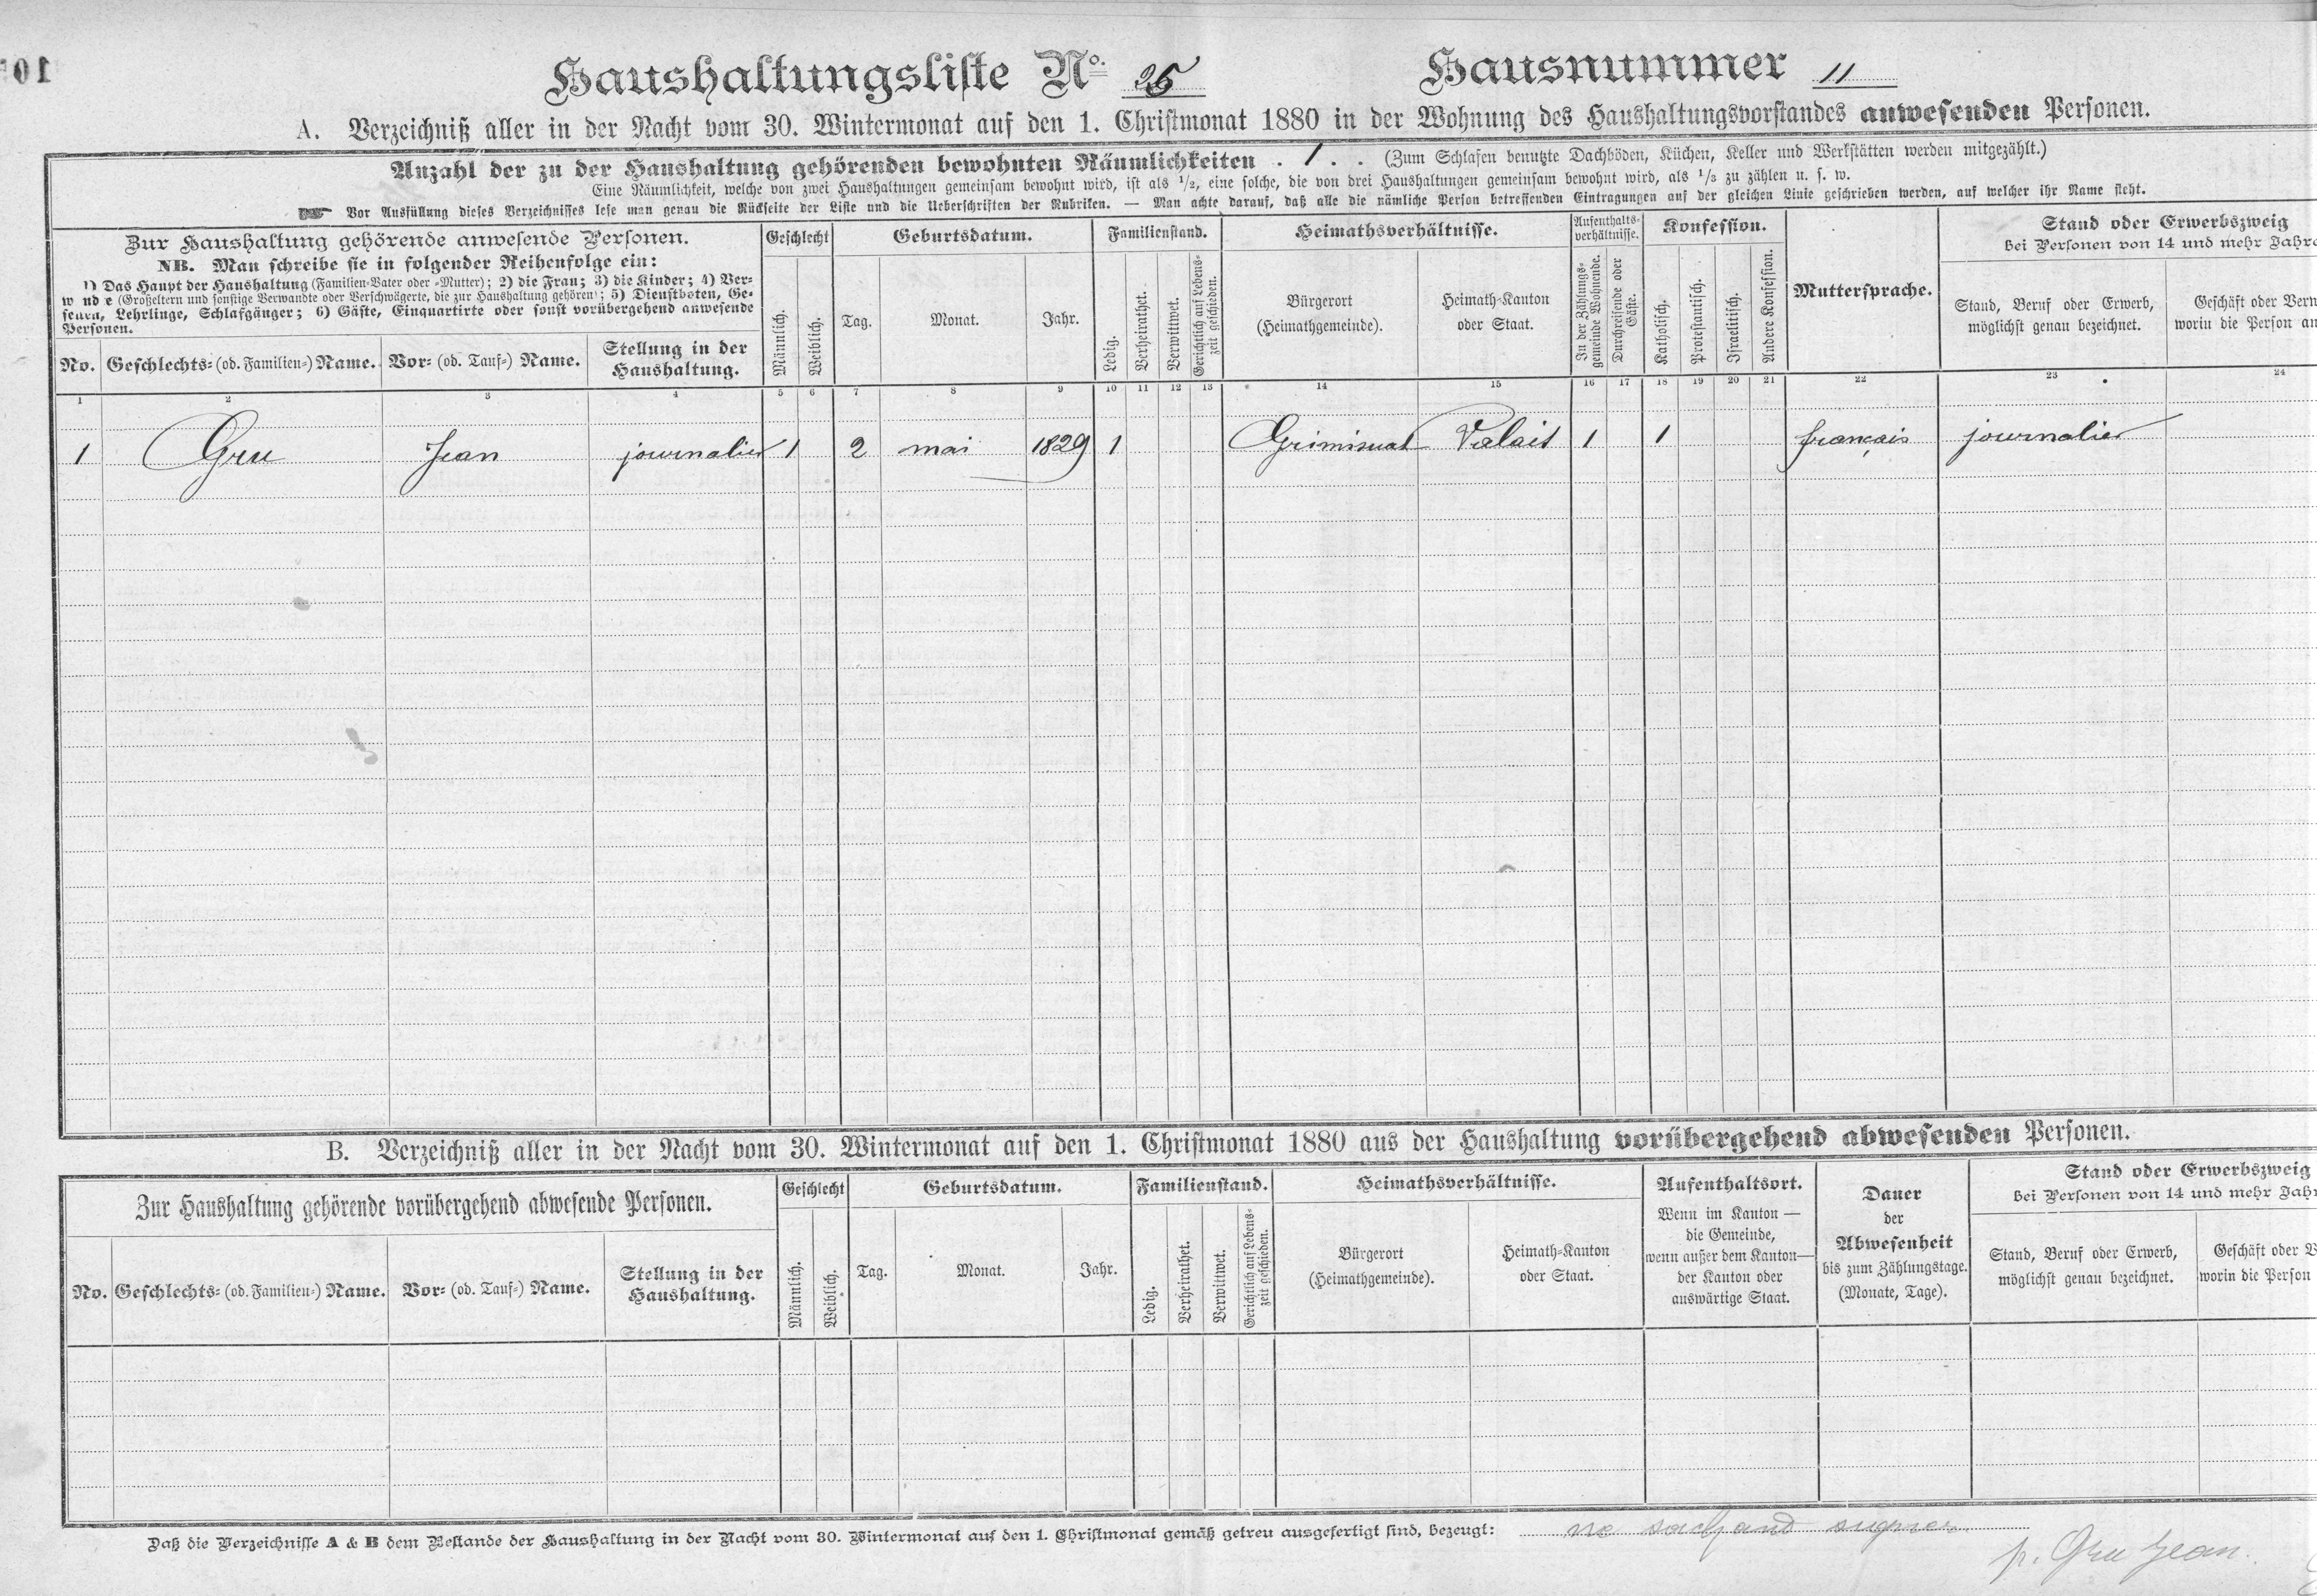 Haushaltungsliste No. 26 Hausnummer 11
A. Verzeichniß aller in der Nacht vom 30. Wintermonat auf den 1. Christmonat 1880 in der Wohnung des Haushaltungsvorstandes anwesenden Personen.
Anzahl der zu der Haushaltung gehörenden bewohnten Räumlichkeiten . 1 . . (Zum Schlafen benutzte Dachböden, Küchen, Keller und Werkstätten werden mitgezählt.)
Eine Räumlichkeit, welche von zwei Haushaltungen gemeinsam bewohnt wird, ist als 1/2, eine solche, die von drei Haushaltungen gemeinsam bewohnt wird, als 1/3 zu zählen u. s. w.
☞ Vor Ausfüllung dieses Verzeichnisses lese man genau die Rückseite der Liste und die Ueberschriften der Rubriken. — Man achte darauf, daß alle die nämliche Person betreffenden Eintragungen auf der gleichen Linie geschrieben werden, auf welcher ihr Name steht.
Zur Haushaltung gehörende anwesende Personen.
NB. Man schreibe sie in folgender Reihenfolge ein:
1) Das Haupt der Haushaltung (Familien-Vater oder -Mutter); 2) die Frau; 3) die Kinder; 4) Ver-
w nd e (Großeltern und sonstige Verwandte oder Verschwägerte, die zur Haushaltung gehören); 5) Dienstboten, Ge-
sellen, Lehrlinge, Schlafgänger; 6) Gäste, Einquartirte oder sonst vorübergehend anwesende
Personen.
No. Geschlechts- (od. Familien-) Name. Vor- (od. Tauf-) Name. Stellung in der
Haushaltung.
Geschlecht
Männlich. Weiblich.
Geburtsdatum.
Tag. Monat. Jahr.
Familienstand.
Ledig. Verheirathet. Verwittwet. Gerichtlich auf Lebens-
zeit geschieden.
Heimathsverhältnisse.
Bürgerort
(Heimathgemeinde).
Heimath-Kanton
oder Staat.
Aufenthalts-
verhältnisse.
In der Zählungs-
gemeinde Wohnende.
Durchreisende oder
Gäste.
Konfession.
Katholisch. Protestantisch. Israelitisch. Andere Konfession.
Muttersprache.
Stand oder Erwerbszweig
bei Personen von 14 und mehr Jahre
Stand, Beruf oder Erwerb,
möglichst genau bezeichnet.
Geschäft oder Verw
worin die Person an
1 2 3 4 5 6 7 8 9 10 11 12 13 14 15 16 17 18 19 20 21 22 23 24
1 Gru Jean journalier 1 2 mai 1829 1 Grimisuat Valais 1 1 français journalier
B. Verzeichniß aller in der Nacht vom 30. Wintermonat auf den 1. Christmonat 1880 aus der Haushaltung vorübergehend abwesenden Personen.
Zur Haushaltung gehörende vorübergehend abwesende Personen.
No. Geschlechts- (od. Familien-) Name. Vor- (od. Tauf-) Name. Stellung in der
Haushaltung.
Geschlecht
Männlich. Weiblich.
Geburtsdatum.
Tag. Monat. Jahr.
Familienstand.
Ledig. Verheirathet. Verwittwet. Gerichtlich auf Lebens-
zeit geschieden.
Heimathsverhältnisse.
Bürgerort
(Heimathgemeinde).
Heimath-Kanton
oder Staat.
Aufenthaltsort.
Wenn im Kanton —
die Gemeinde,
wenn außer dem Kanton—
der Kanton oder
auswärtige Staat.
Dauer
der
Abwesenheit
bis zum Zählungstage.
(Monate, Tage).
Stand oder Erwerbszweig
bei Personen von 14 und mehr Jahr
Stand, Beruf oder Erwerb,
möglichst genau bezeichnet.
Geschäft oder V
worin die Person
Daß die Verzeichnisse A & B dem Bestande der Haushaltung in der Nacht vom 30. Wintermonat auf den 1. Christmonat gemäß getreu ausgefertigt sind, bezeugt: ne sachant signer
p. Gru Jean.